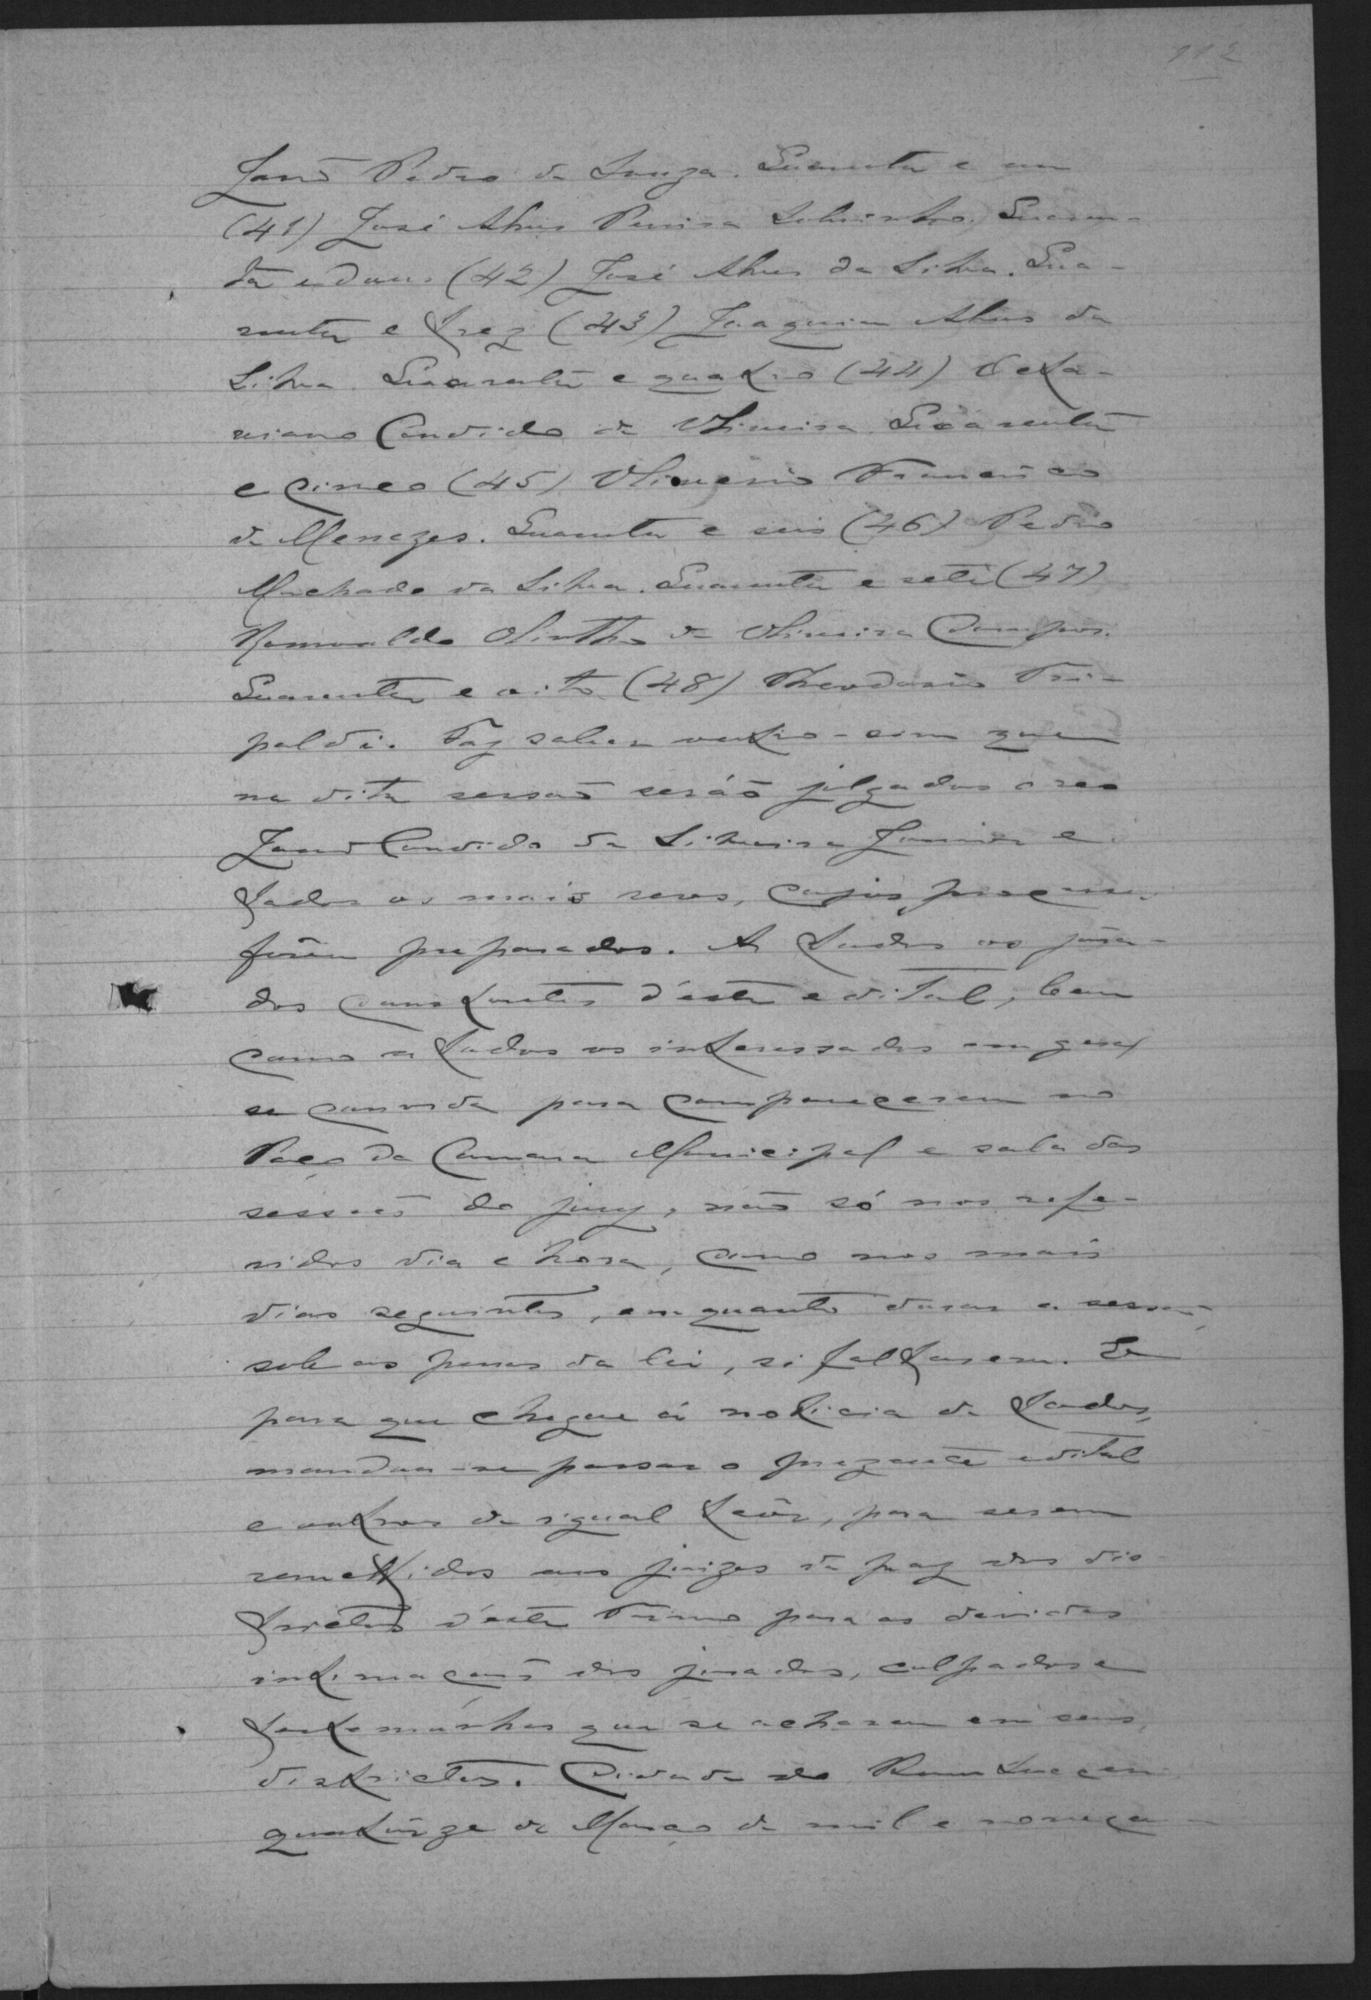 112
João Pedro de Souza. Quarenta e um
(41) José Alves Pereira Sobrinho. Quaren-
ta e dous (42) José Alves da Silva. Qua-
renta e trez (43) Joaquim Alves da
Silva. Quarenta e quatro (44) Octa-
viano Candido de Oliveira. Quarenta
e cinco (45) Olimpio Francisco
de Menezes. Quarenta e seis (46) Pedro
Machado da Silva. Quarenta e sete (47)
Romualdo Olintho de Oliveira Campos.
Quarenta e oito (48) Theodosio Tri-
poldi. Faz saber outro-sim que
na dita sessão serão julgados o reo
João Candido da Silveira Junior e
todos os mais reos, cujos processos
forem preparados. A todos os jura-
dos constantes d'este edital, bem
como a todos os interessados em geral
se convida para comparecerem no
Paço da Camara Municipal e sala das
sessões do jury, não só nos refe-
ridos dia e hora, como nos mais
dias seguintes, emquanto durar a sessão,
sob as penas da lei, si faltarem. E
para que chegue á noticia de todos,
mandou-se passar o prezente edital
e outros de igual teôr, para serem
remettidos aos juizes de paz dos dis-
trictos d'este Termo para as devidas
intimações dos jurados, culpados e
testemunhas que se acharem em seus
districtos. Cidade do Bom Successo
quatorze de Março de mil e novecen-